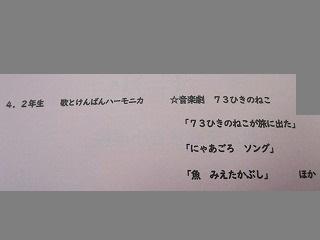 ４．２年生　歌とけんばんハーモニカ　☆音楽劇　７３ひきのねこ
「７３ひきのねこが旅に出た」
「にゃあごろ　ソング」
「魚　みえたかぶし」　ほか